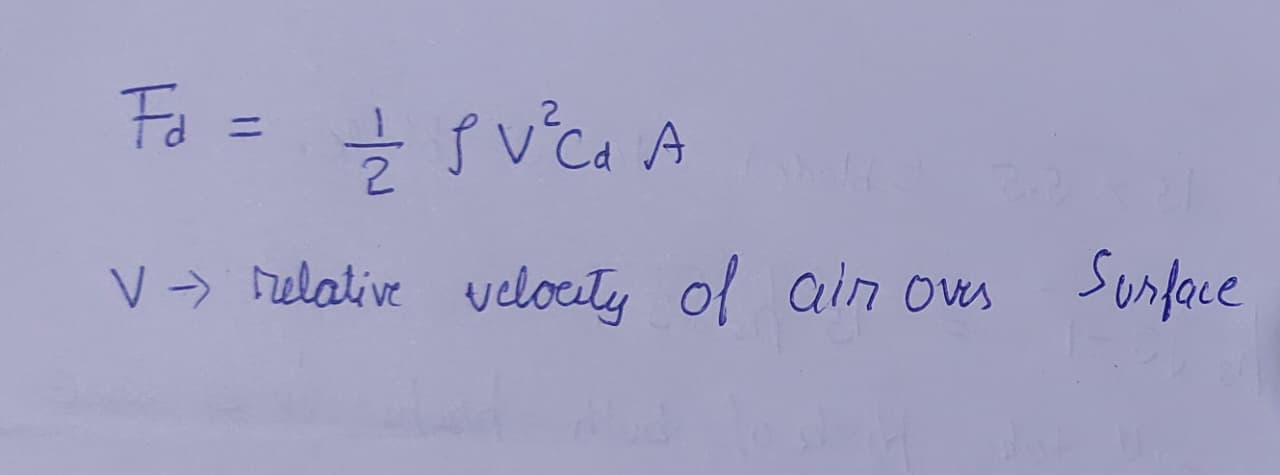 Fd = 1/2 ρ V²Cd A
V → relative velocity of air over Surface